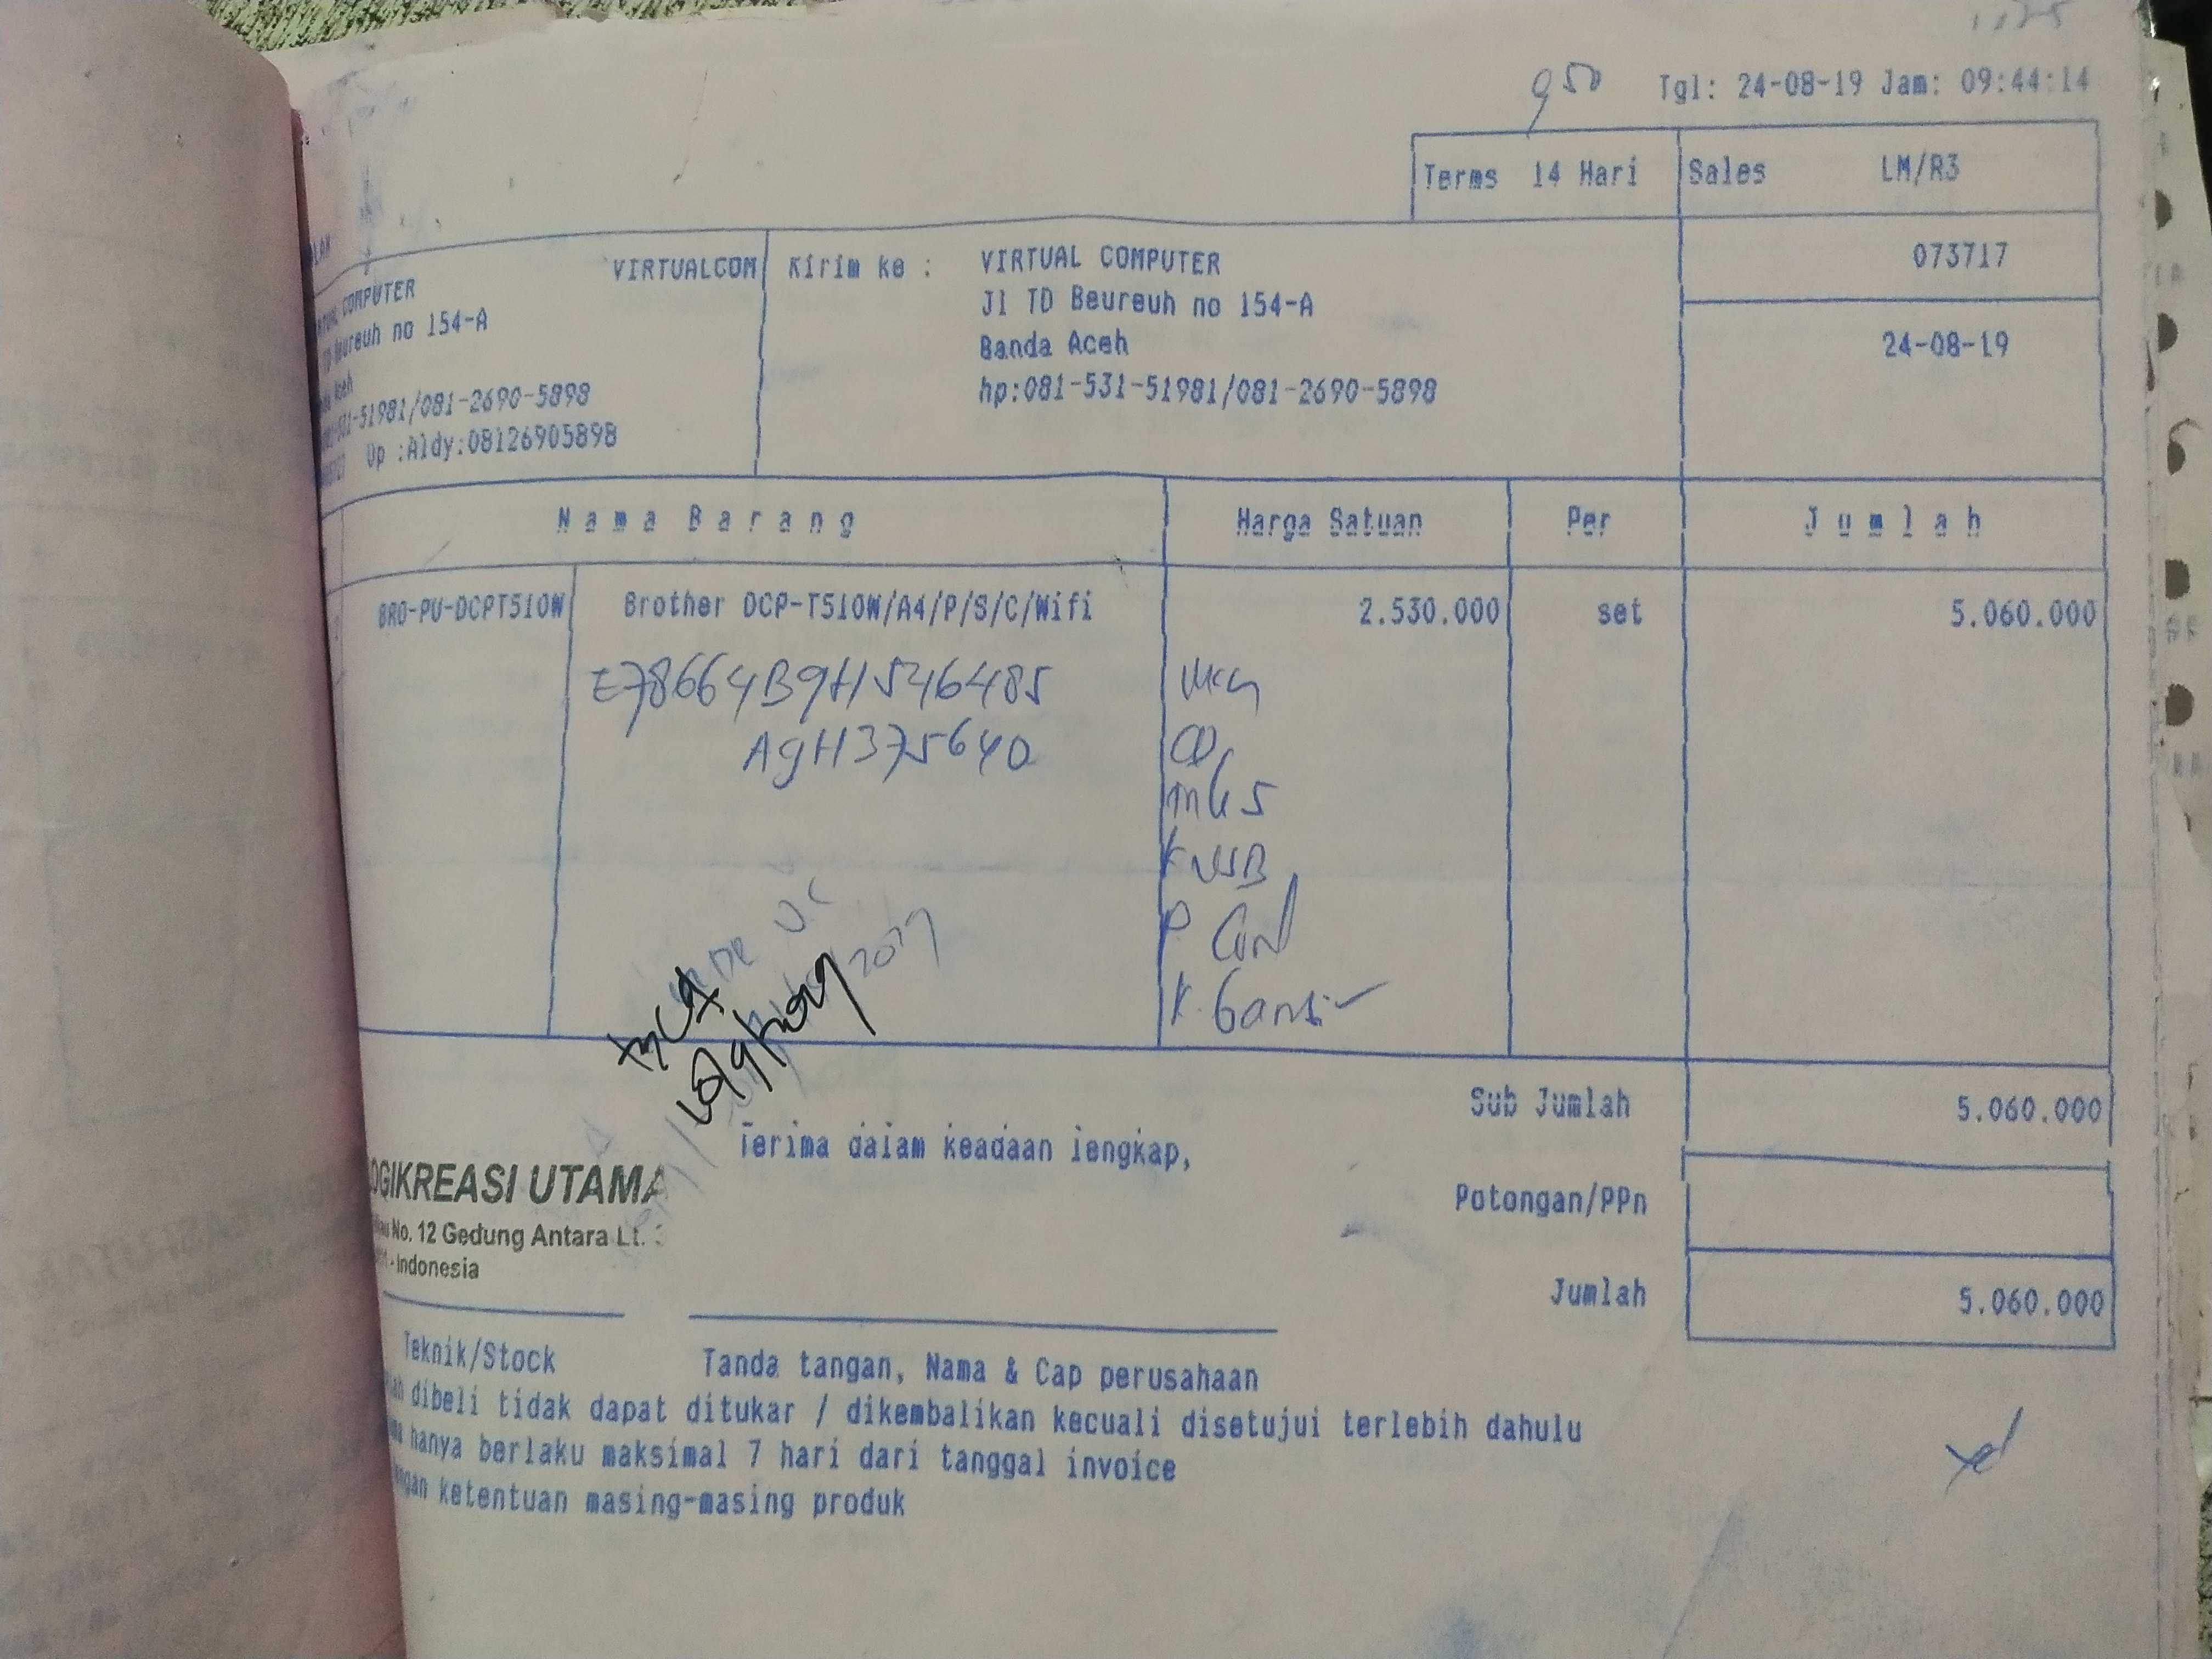 950 Tgl: 24-08-19 Jam: 09:44:14
Terms 14 Hari Sales LM/R3
VIRTUALCOM
COMPUTER
Beureuh no 154-A
Aceh
-51981/081-2690-5898
Up :Aldy:08126905898
Kirim ke : VIRTUAL COMPUTER
Jl TD Beureuh no 154-A
Banda Aceh
hp:081-531-51981/081-2690-5898
073717
24-08-19
Nama Barang Harga Satuan Per Jumlah
BRO-PU-DCPT510W Brother DCP-T510W/A4/P/S/C/Wifi 2.530.000 set 5.060.000
E78664B9H546485
A9H375640
CD
K USB
P.
K. Garansi
Sub Jumlah 5.060.000
Terima dalam keadaan lengkap,
Potongan/PPn
Jumlah 5.060.000
OGIKREASI UTAMA
No. 12 Gedung Antara Lt.
- Indonesia
Teknik/Stock Tanda tangan, Nama & Cap perusahaan
dibeli tidak dapat ditukar / dikembalikan kecuali disetujui terlebih dahulu
hanya berlaku maksimal 7 hari dari tanggal invoice
ketentuan masing-masing produk